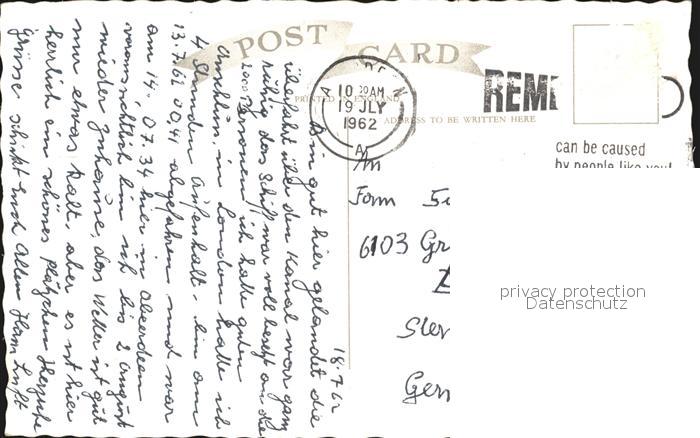 POST CARD
PRINTED IN ENGLAND
ADDRESS TO BE WRITTEN HERE
10 30AM
19 JLY
1962
A
REME
can be caused
by people like you!
18.7.62
Bin gut hier gelandet die
überfahrt über den Kanal war ganz
ruhig das Schiff war voll besetzt an die
2000 Personen. ich hatte guten
Anschluss, in London hatte ich
4 Stunden Aufenthalt. bin am
13.7.62 00,41 abgefahren und war
am 14. 07.34 hier in Aberdeen
voraussichtlich bin ich bis 2 August
wieder Zuhause, das Wetter ist gut
nur etwas kalt, aber es ist hier
herrlich ein schönes Plätzchen Herzliche
Grüsse schickt Euch Allen
An
Fam
6103 Gr
Ger
privacy protection
Datenschutz